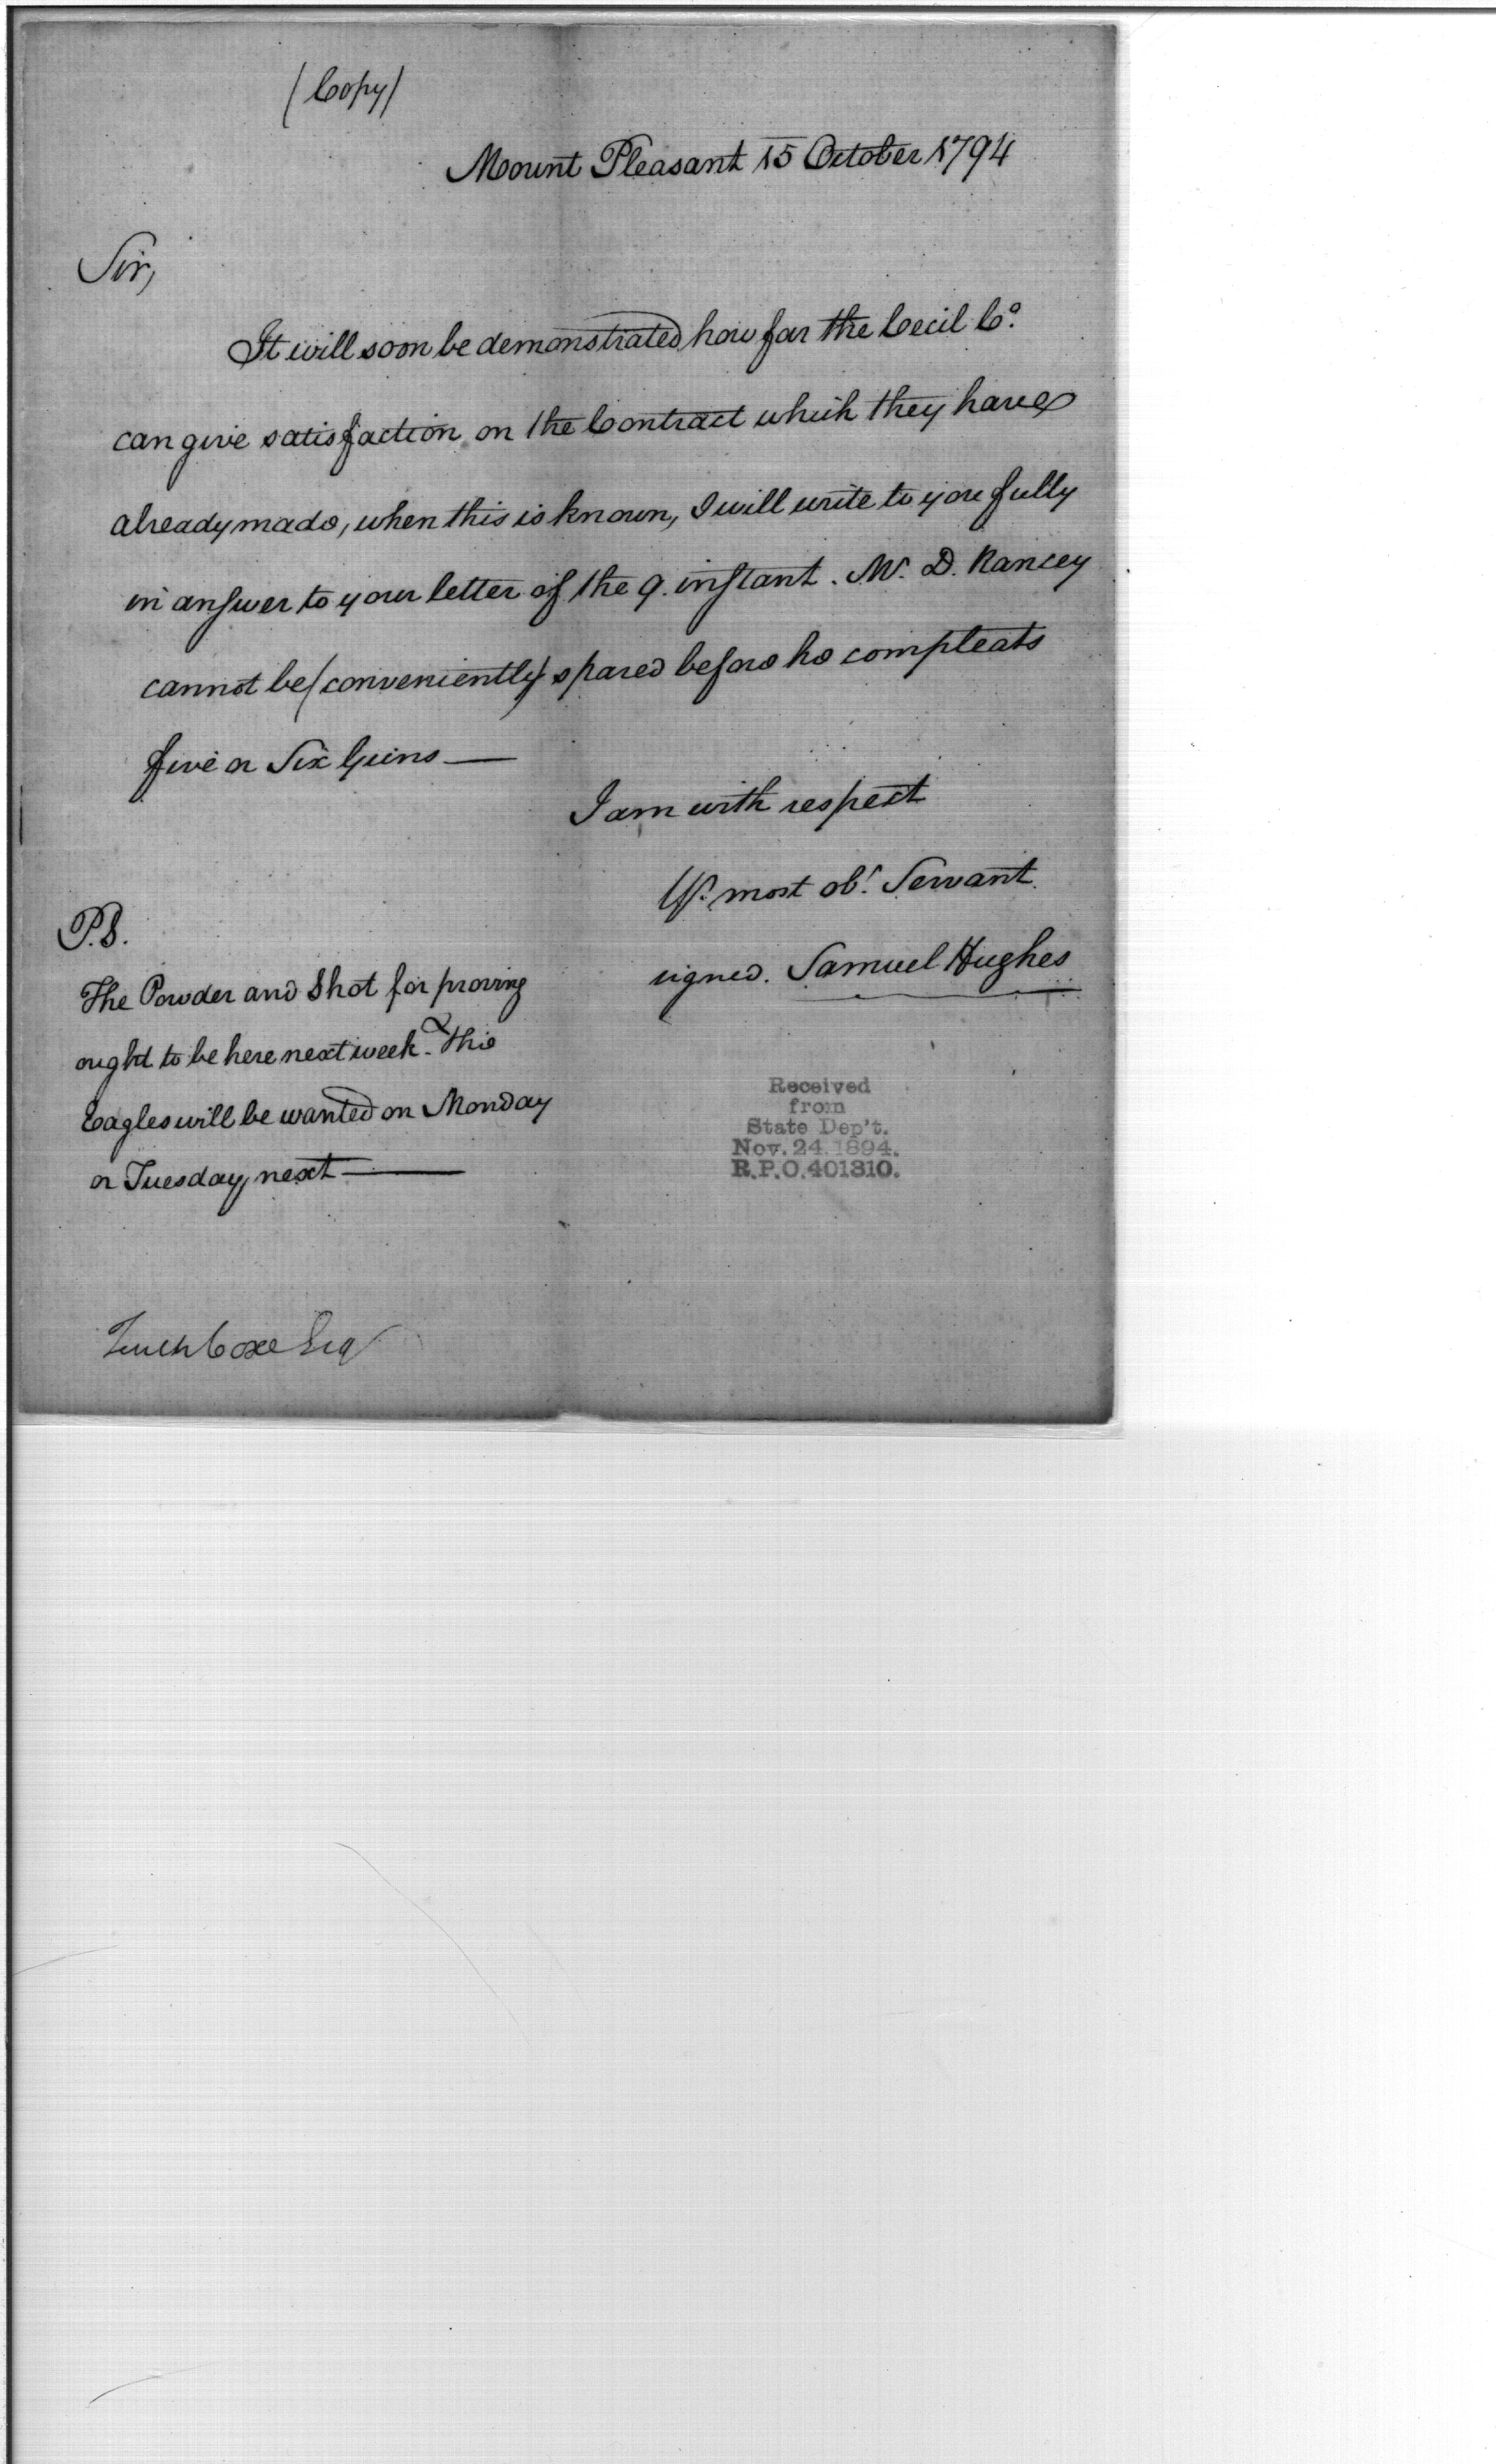 (Copy)
Mount Pleasant 15 October 1794
Sir,
It will soon be demonstrated how far the Cecil Co.
can give satisfaction on the Contract which they have
already made, when this is known, I will write to you fully
in answer to your letter of the 9. instant. Mr. D. Rancey
cannot be (conveniently) spared before he compleats
five or Six Guns —
I am with respect
Yr. most obt. Servant
signed. Samuel Hughes
P.S.
The Powder and Shot for proving
ought to be here next week. & The
Eagles will be wanted on Monday
or Tuesday next —
Tench Coxe Esq
Received
from
State Dep't.
Nov. 24. 1894.
R.P.O. 401310.